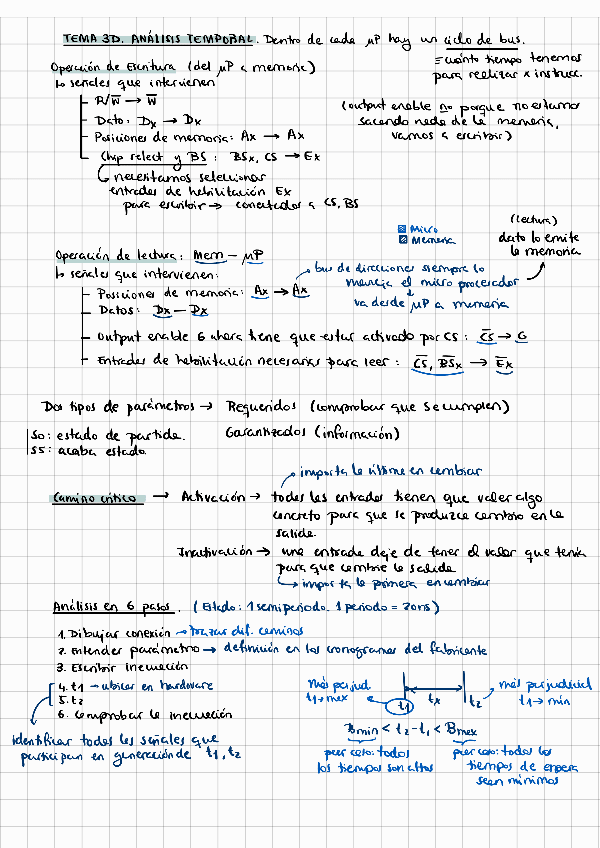 TEMA 3D. ANÁLISIS TEMPORAL. Dentro de cada µP hay un ciclo de bus.
= cuánto tiempo tenemos
para realizar x instrucc.
Operación de Escritura (del µP a memoria)
↳ señales que intervienen
R/W̅ → W̅
Dato: Dx → Dx
Posiciones de memoria: Ax → Ax
Chip select y BS: BSx, CS → Ex
↳ necesitamos seleccionar
entradas de habilitación Ex
para escribir → conectados a CS, BS
(output enable no porque no estamos
sacando nada de la memoria,
vamos a escribir)
Micro
Memoria
(lectura)
dato lo emite
la memoria
Operación de lectura: Mem - µP
↳ señales que intervienen:
bus de direcciones siempre lo
maneja el micro procesador
va desde µP a memoria
Posiciones de memoria: Ax → Ax
Datos: Dx - Dx
Output enable G ahora tiene que estar activado por CS: C̅S̅ → G
Entradas de habilitación necesarias para leer: C̅S̅, B̅S̅x → E̅x
Dos tipos de parámetros → Requeridos (comprobar que se cumplen)
Garantizados (información)
S0: estado de partida.
S5: acaba estado.
importa la última en cambiar
Camino crítico → Activación → todas las entradas tienen que valer algo
concreto para que se produzca cambio en la
salida.
Inactivación → una entrada deje de tener el valor que tenía
para que cambie la salida
↳ importa la primera en cambiar
Análisis en 6 pasos. (Estado: 1 semiperiodo. 1 periodo = 20ns)
1. Dibujar conexión → trazar dif. caminos
2. Entender parámetro → definición en los cronogramas del fabricante
3. Escribir inecuación
4. t1 → ubicar en hardware
5. t2
6. Comprobar la inecuación
identificar todas las señales que
participan en generación de t1, t2
más perjud.
t1 → max
t1
tx
t2
más perjudicial
t1 → min
Bmin < t2 - t1 < Bmax
peor caso: todos
los tiempos son altos
peor caso: todos los
tiempos de espera
sean mínimos